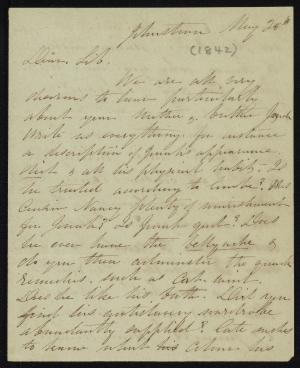 Johnstown May 28th
(1842)
Dear Lib.
We are all very
desirous to have particularly
about your Mother & brother Jonah
Write us everything for instance
a description of Jonah's appearance
diet & all his physical habits. Is
he treated according to Combe? Has
Cousin Nancy plenty of nourishment
for Jonah? Is Jonah quiet? Does
he ever have the bellyache &
do you then administer the quack
remedies, such as Cat-mint.
Does he like his bath. Did you
find his
abundantly supplied? Kate wishes
to know what his